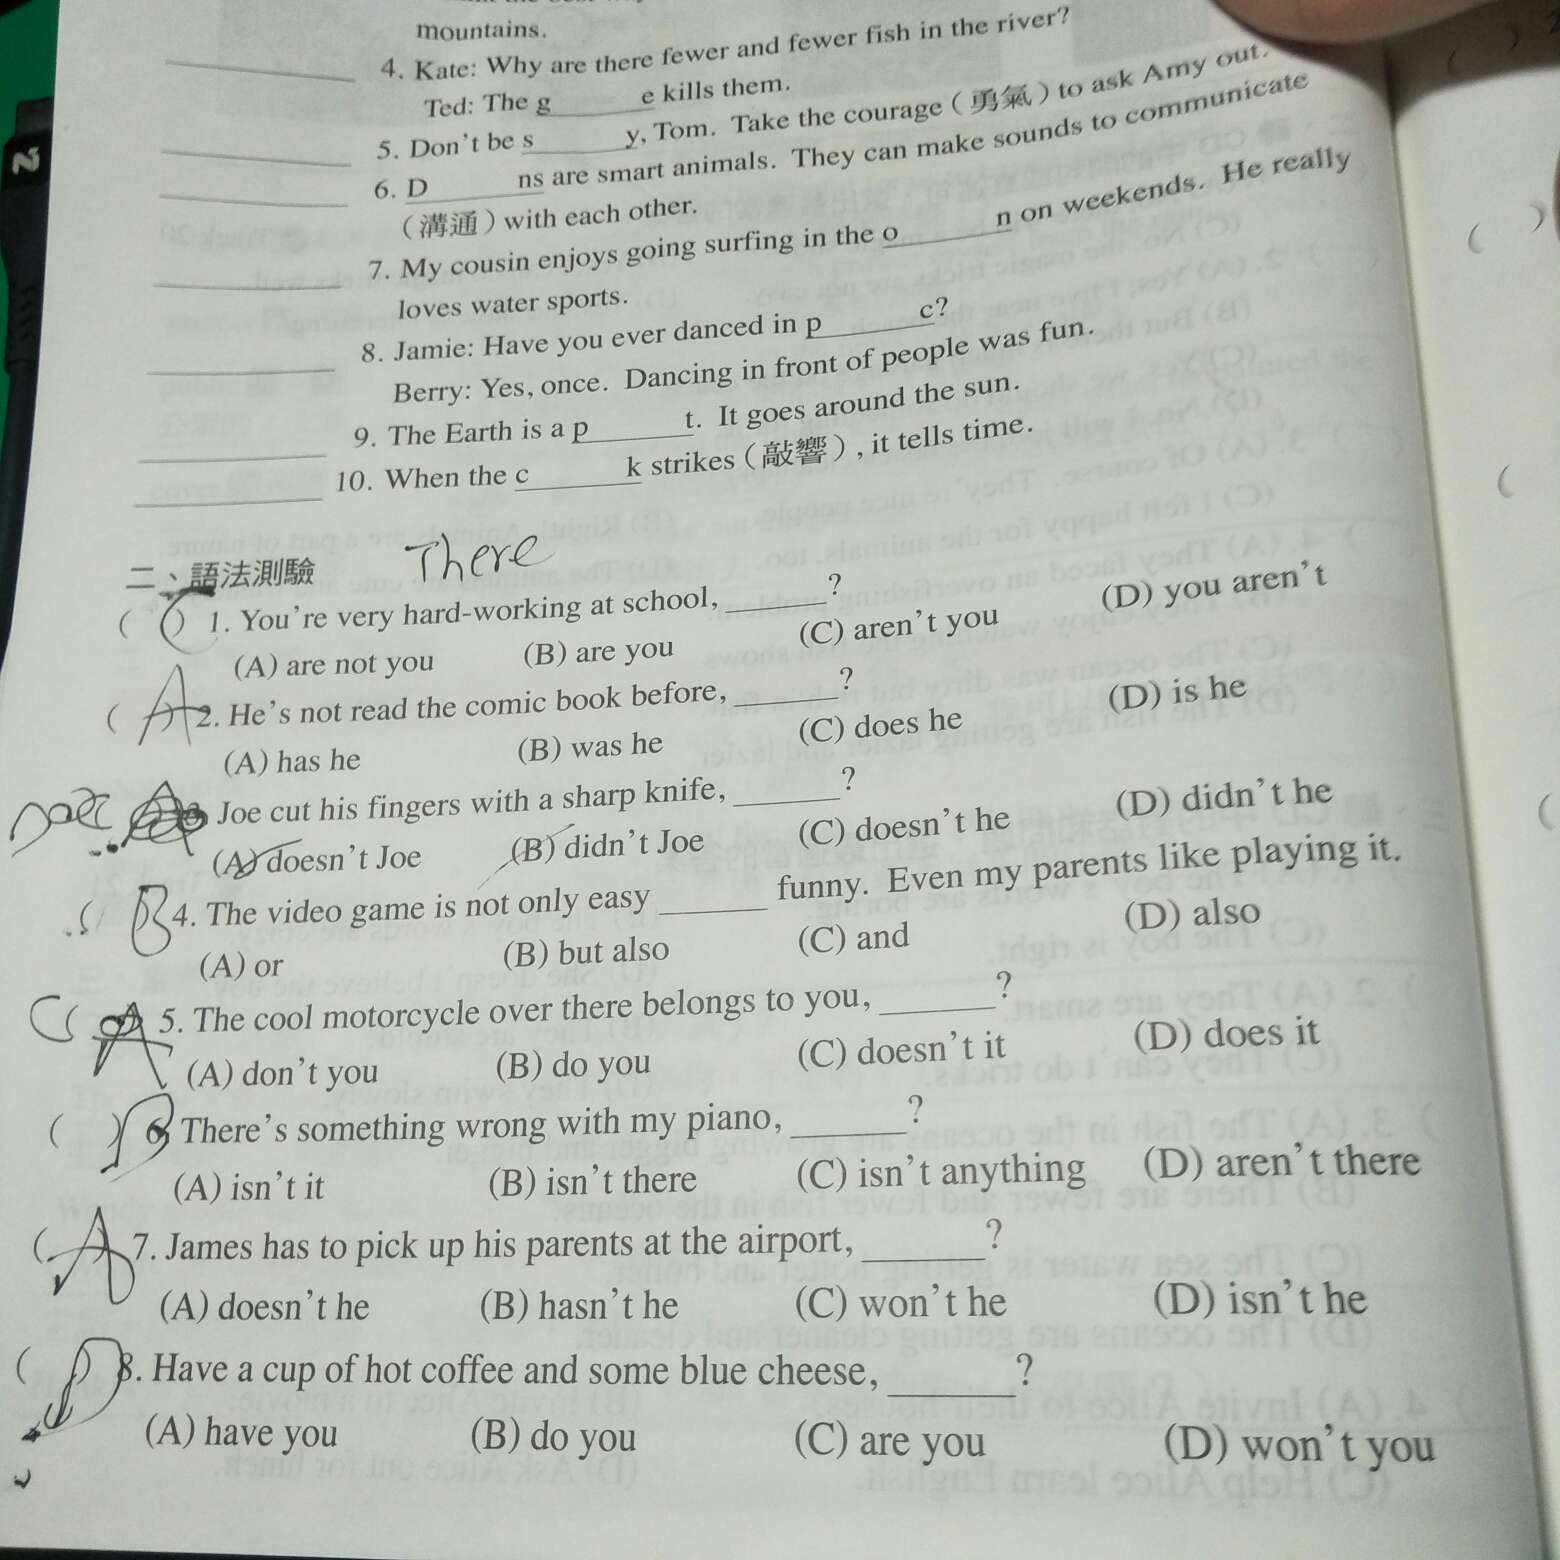 mountains.
4. Kate: Why are there fewer and fewer fish in the river?
Ted: The g______e kills them.
5. Don't be s______y, Tom. Take the courage (勇氣) to ask Amy out.
6. D______ns are smart animals. They can make sounds to communicate
(溝通) with each other.
7. My cousin enjoys going surfing in the o______n on weekends. He really
loves water sports.
8. Jamie: Have you ever danced in p______c?
Berry: Yes, once. Dancing in front of people was fun.
9. The Earth is a p______t. It goes around the sun.
10. When the c______k strikes (敲響), it tells time.
There
二、語法測驗
( ) 1. You're very hard-working at school, ______?
(A) are not you (B) are you (C) aren't you (D) you aren't
( A ) 2. He's not read the comic book before, ______?
(A) has he (B) was he (C) does he (D) is he
3. Joe cut his fingers with a sharp knife, ______?
(A) doesn't Joe (B) didn't Joe (C) doesn't he (D) didn't he
( B ) 4. The video game is not only easy ______ funny. Even my parents like playing it.
(A) or (B) but also (C) and (D) also
C ( A 5. The cool motorcycle over there belongs to you, ______?
(A) don't you (B) do you (C) doesn't it (D) does it
( ) 6. There's something wrong with my piano, ______?
(A) isn't it (B) isn't there (C) isn't anything (D) aren't there
( A ) 7. James has to pick up his parents at the airport, ______?
(A) doesn't he (B) hasn't he (C) won't he (D) isn't he
( D ) 8. Have a cup of hot coffee and some blue cheese, ______?
(A) have you (B) do you (C) are you (D) won't you